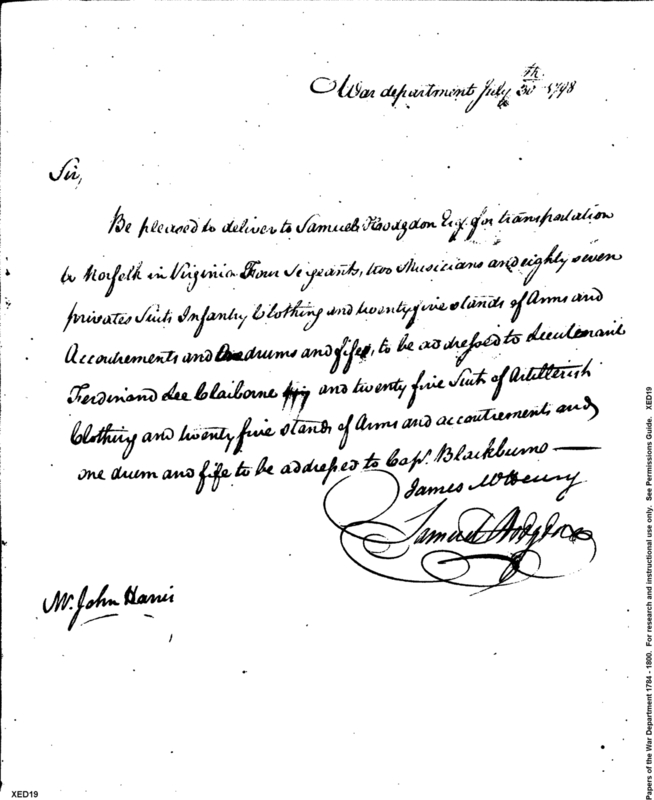 War department July 30th 1798
Sir,
Be pleased to deliver to Samuel Hodgdon Esq. for transportation
to Norfolk in Virginia Four Sergeants, two Musicians and eighty seven
privates Suits Infantry Clothing and twenty five stands of Arms and
Accoutrements and drums and fifes, to be addressed to Lieutenant
Ferdinand Lee Claiborne and twenty five Suits of Artillerist
Clothing and twenty five stands of Arms and accoutrements and
one drum and fife to be addressed to Capt. Blackburns
James McHenry
Samuel Hodgdon
Mr. John Harris
XED19
Papers of the War Department 1784 - 1800. For research and instructional use only. See Permissions Guide. XED19